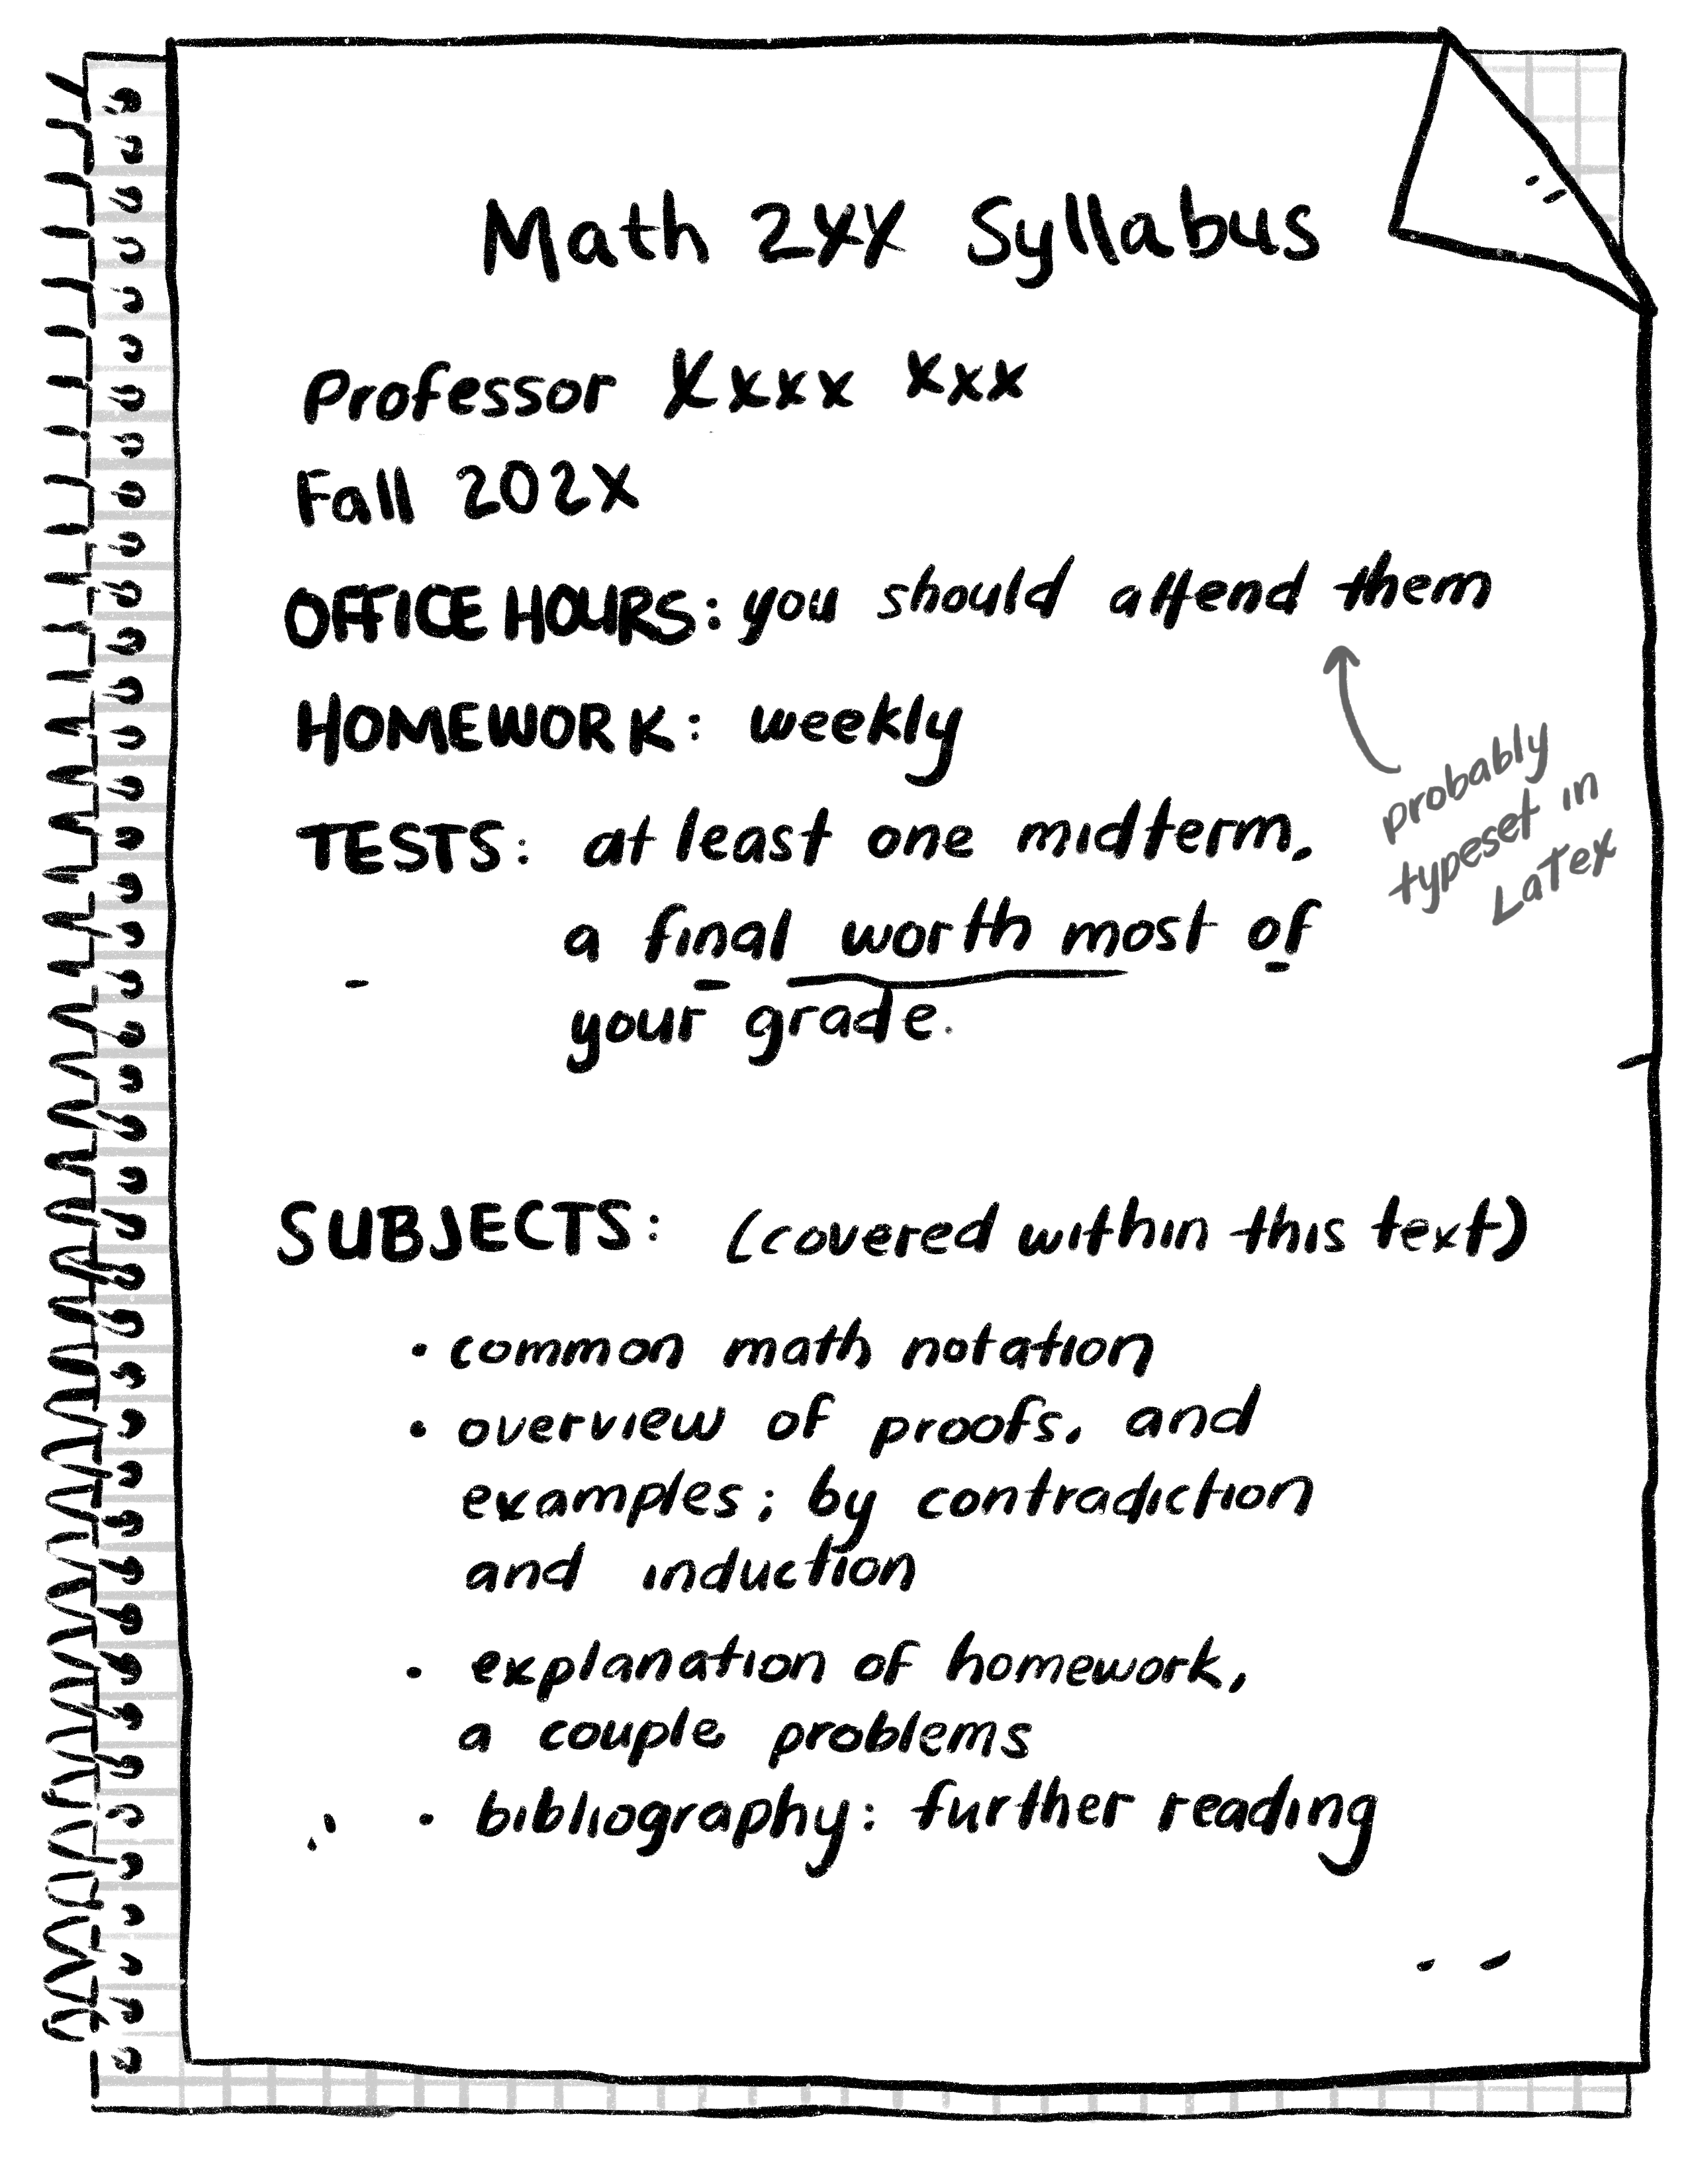 Math 2XX Syllabus
Professor Xxxx xxx
Fall 202X
OFFICE HOURS: you should attend them
HOMEWORK: weekly
probably
typeset in
LaTex
TESTS: at least one midterm,
a final worth most of
your grade.
SUBJECTS: (covered within this text)
• common math notation
• overview of proofs, and
examples; by contradiction
and induction
• explanation of homework,
a couple problems
• bibliography: further reading